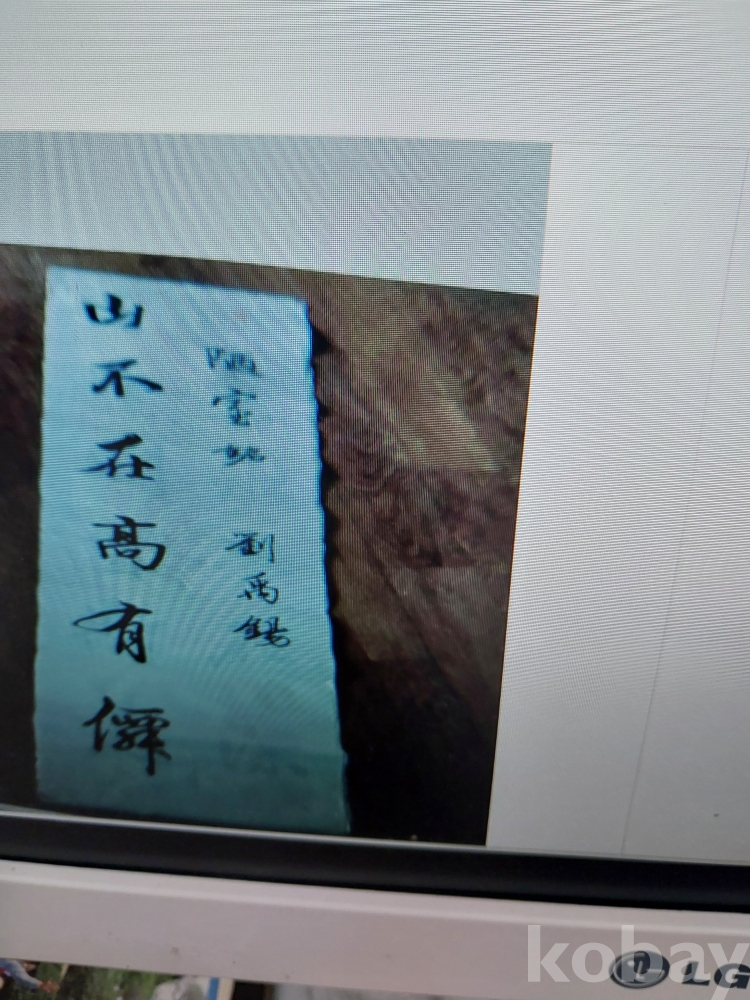 陋室銘 劉禹錫
山不在高有僊
kobay
LG